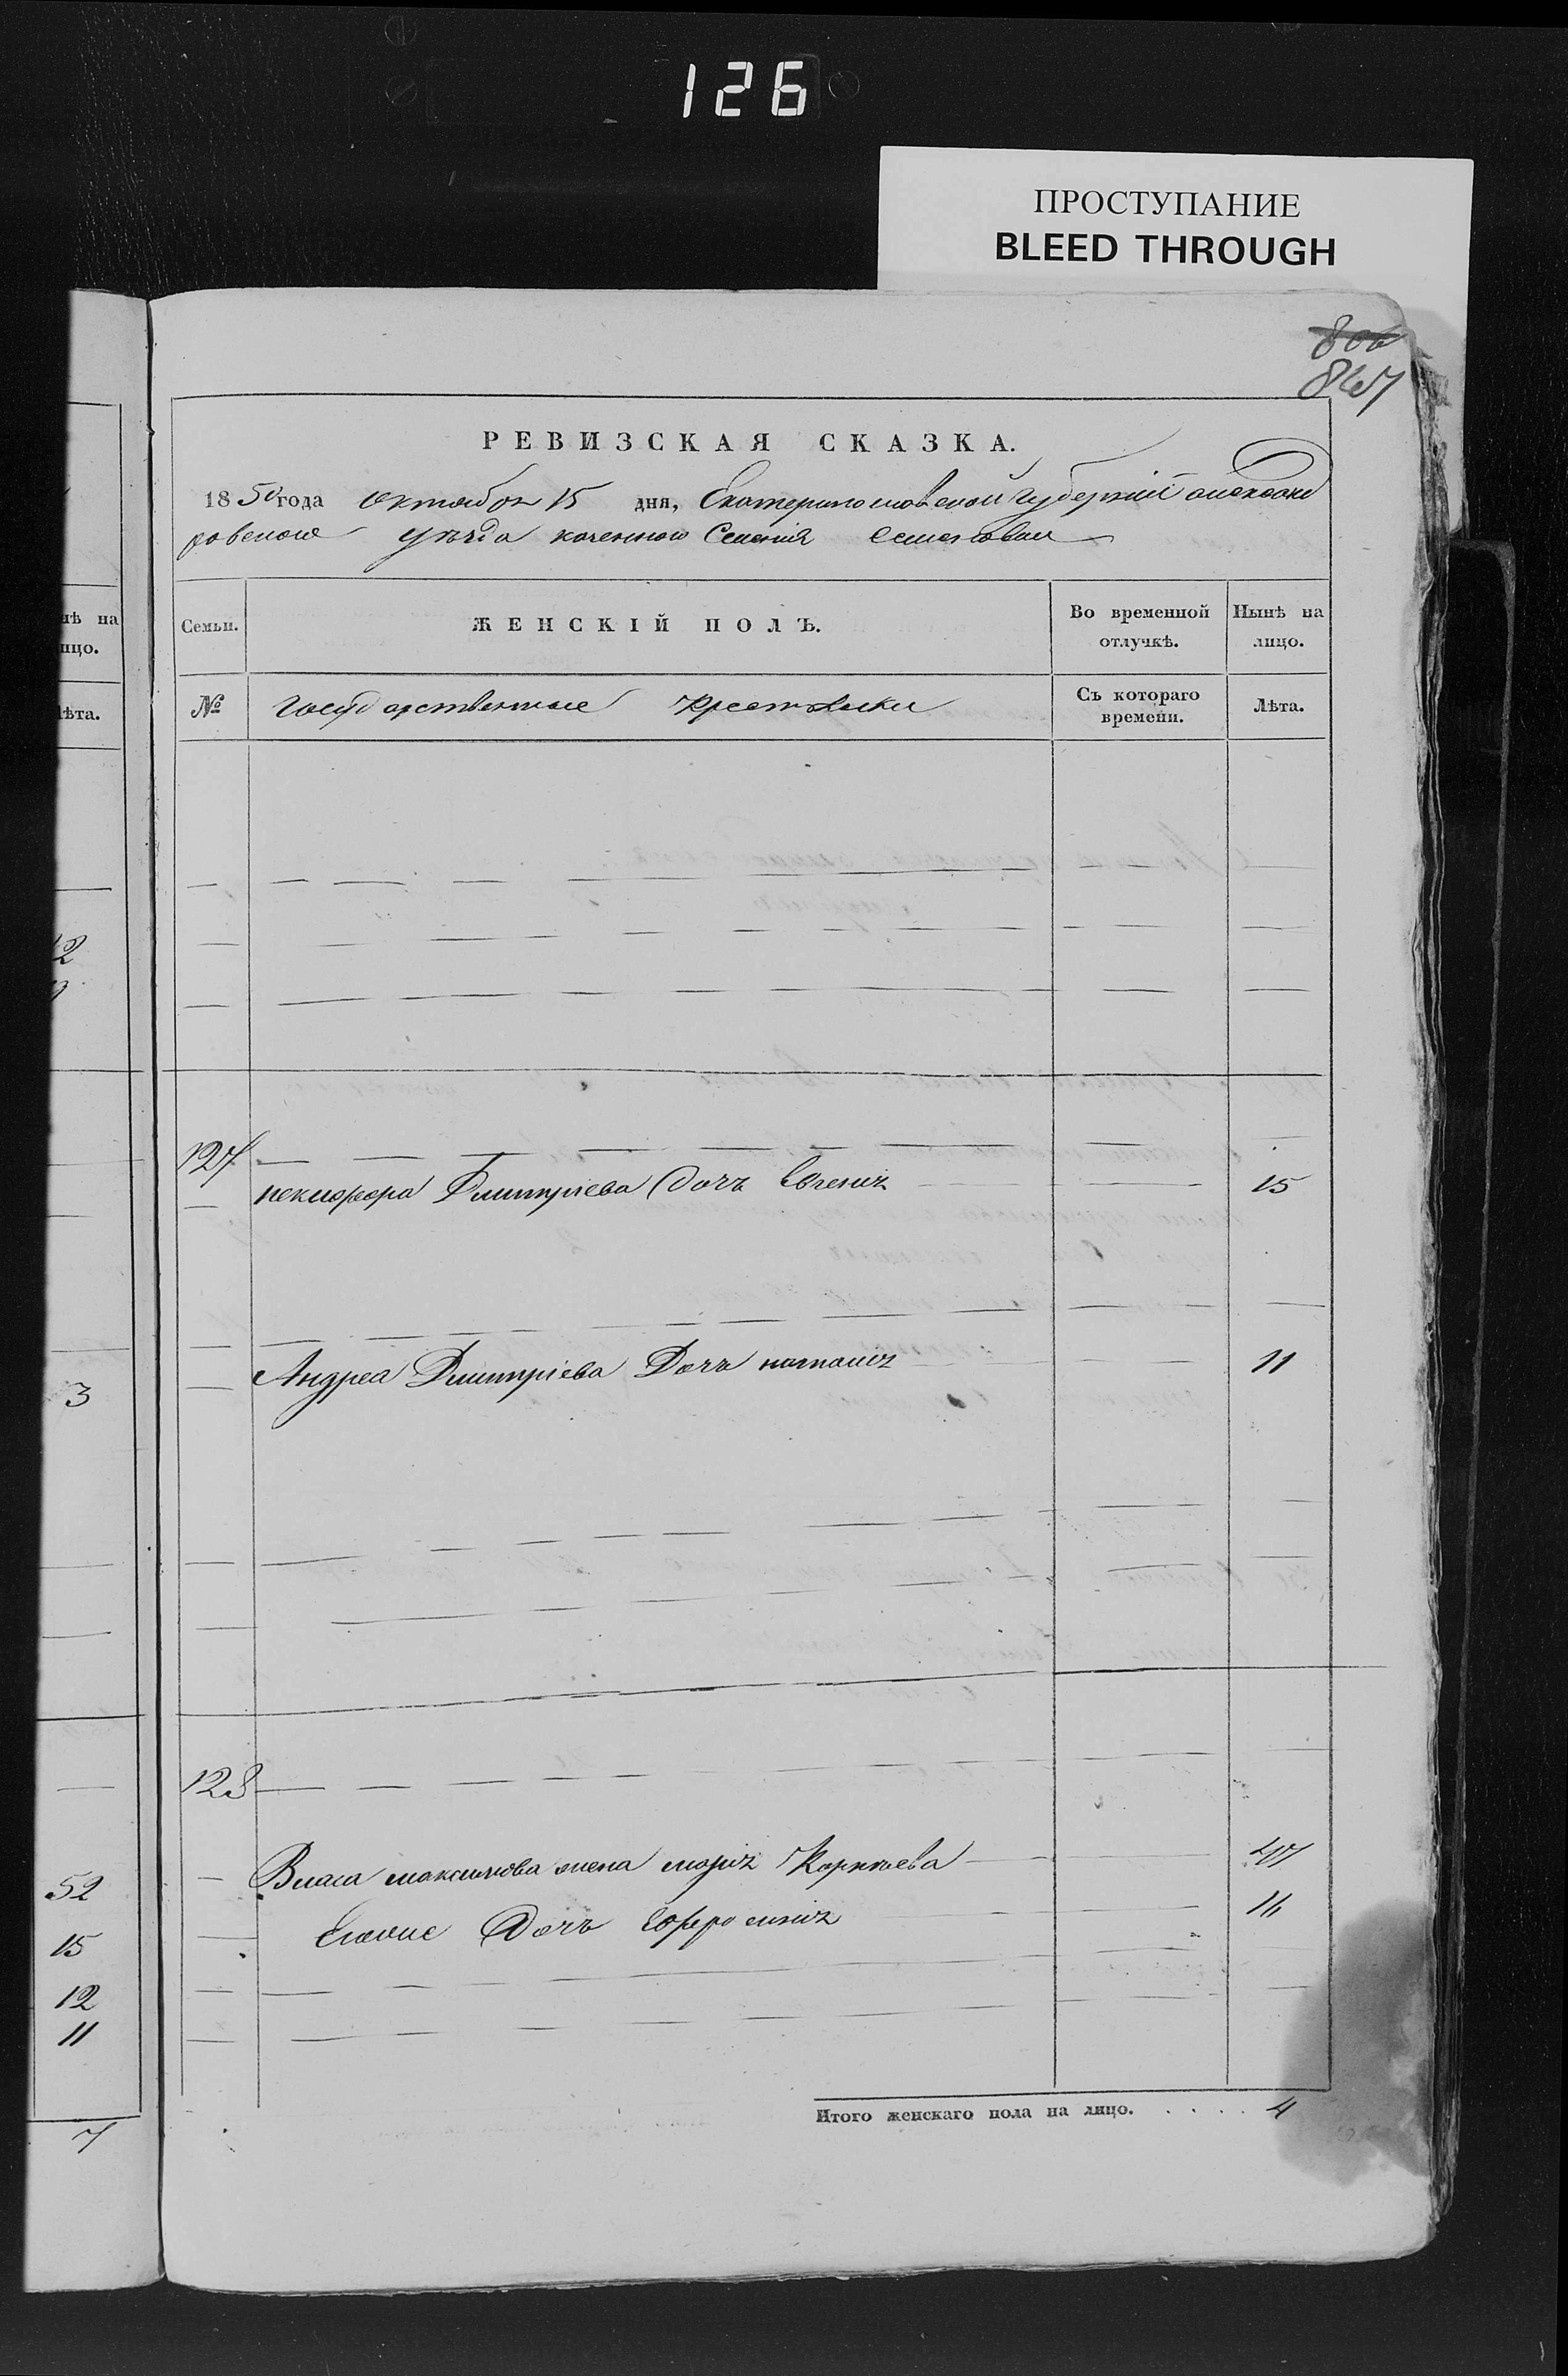 126
ПРОСТУПАНИЕ
BLEED THROUGH
806
867
РЕВИЗСКАЯ СКАЗКА.
1850 года октября 15 дня, Екатеринославской Губерніи александ
ровскаго уѣзда казеннаго Селенія Семеновки
нѣ на
ицо.
Семьи.
ЖЕНСКІЙ ПОЛЪ.
Во временной
отлучкѣ.
Нынѣ на
лицо.
лѣта.
№
Государственные Крестьянки
Съ котораго
времени.
Лѣта.
12
127
никифора Дмитріева Дочь Евгенія 15
Андрея Дмитріева Дочь наталія 11
3
128
Власа максимова жена марія Корнѣева 47
52
Еговые Дочь Ефросинія 16
15
12
11
Итого женскаго пола на лицо. . . . . 4
7